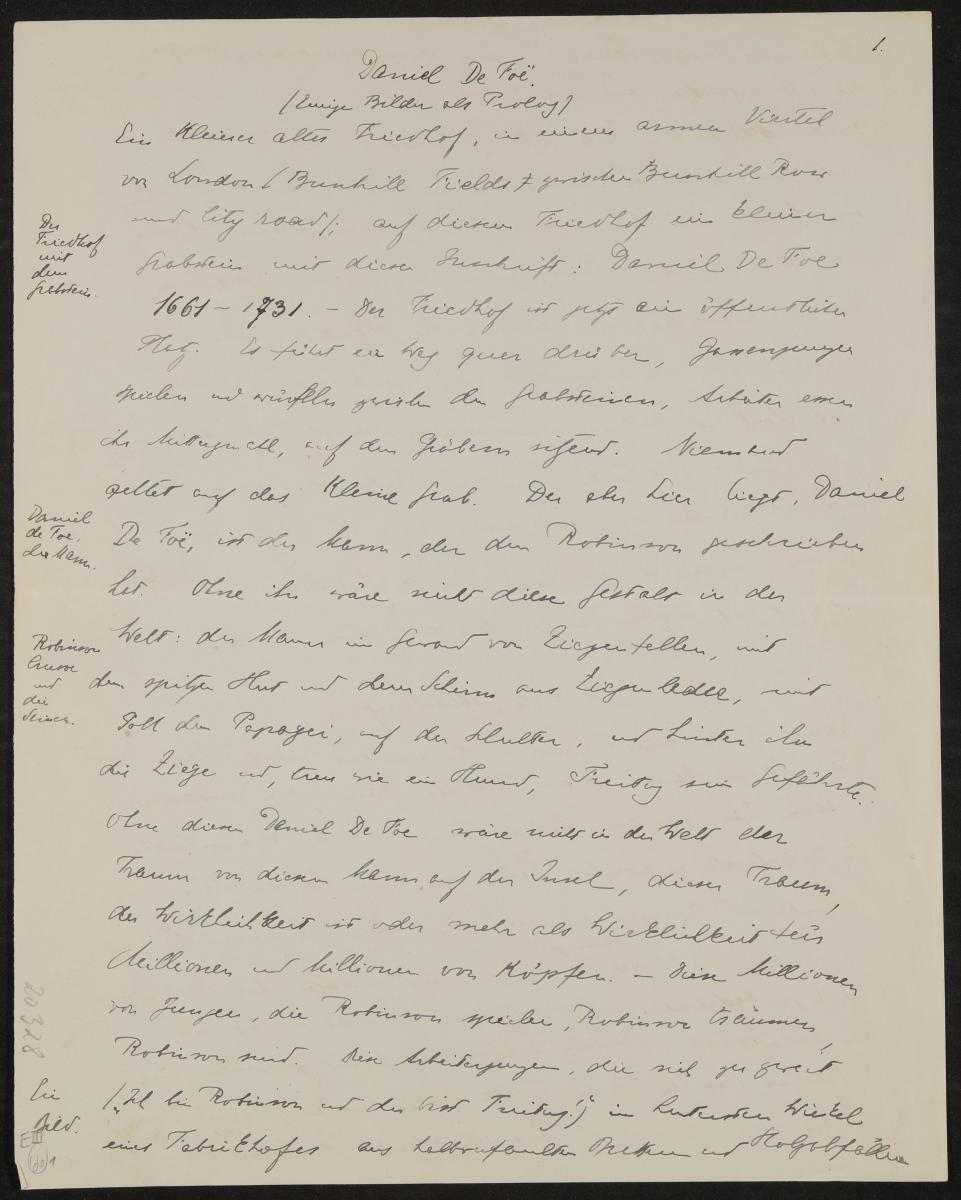 1.
Daniel De Foë.
(Einige Bilder als Prolog)
Ein kleiner alter Friedhof, in einem armen Viertel
von London (Bunhill Fields, zwischen Bunhill Row
und City road); auf diesem Friedhof ein kleiner
Grabstein mit dieser Inschrift: Daniel De Foe
1661 – 1731. – Der Friedhof ist jetzt ein öffentlicher
Platz. Es führt ein Weg quer drüber, Gassenjungen
spielen und würfeln zwischen den Grabsteinen, Arbeiter essen
ihr Mittagmahl, auf den Gräbern sitzend. Niemand
achtet auf das kleine Grab. Der aber hier liegt, Daniel
De Foë, ist der Mann, der den Robinson geschrieben
hat. Ohne ihn wäre nicht diese Gestalt in der
Welt: der Mann im Gewand von Ziegenfellen, mit
dem spitzen Hut und dem Schirm aus Ziegenleder, mit
Poll dem Papagei, auf der Schulter, und hinter ihm
die Ziege und, treu wie ein Hund, Freitag sein Gefährte.
Ohne diesen Daniel De Foe wäre nicht in der Welt der
Traum von diesem Mann auf der Insel, dieser Traum,
der Wirklichkeit ist oder mehr als Wirklichkeit für
Millionen und Millionen von Köpfen. – Diese Millionen
von Jungen, die Robinson spielen, Robinson träumen,
Robinson sind. Diese Arbeiterjungen, die sich zu zweit
("Ich bin Robinson und du bist Freitag!") im hintersten Winkel
eines Fabrikhofes aus halbverfaulten Brettern und Holzabfällen
Der
Friedhof
mit
dem
Grabstein.
Daniel
de Foe,
der Mann.
Robinson
Crusoe
und
die
Seinen.
Ein
Bild.
20328
III
1